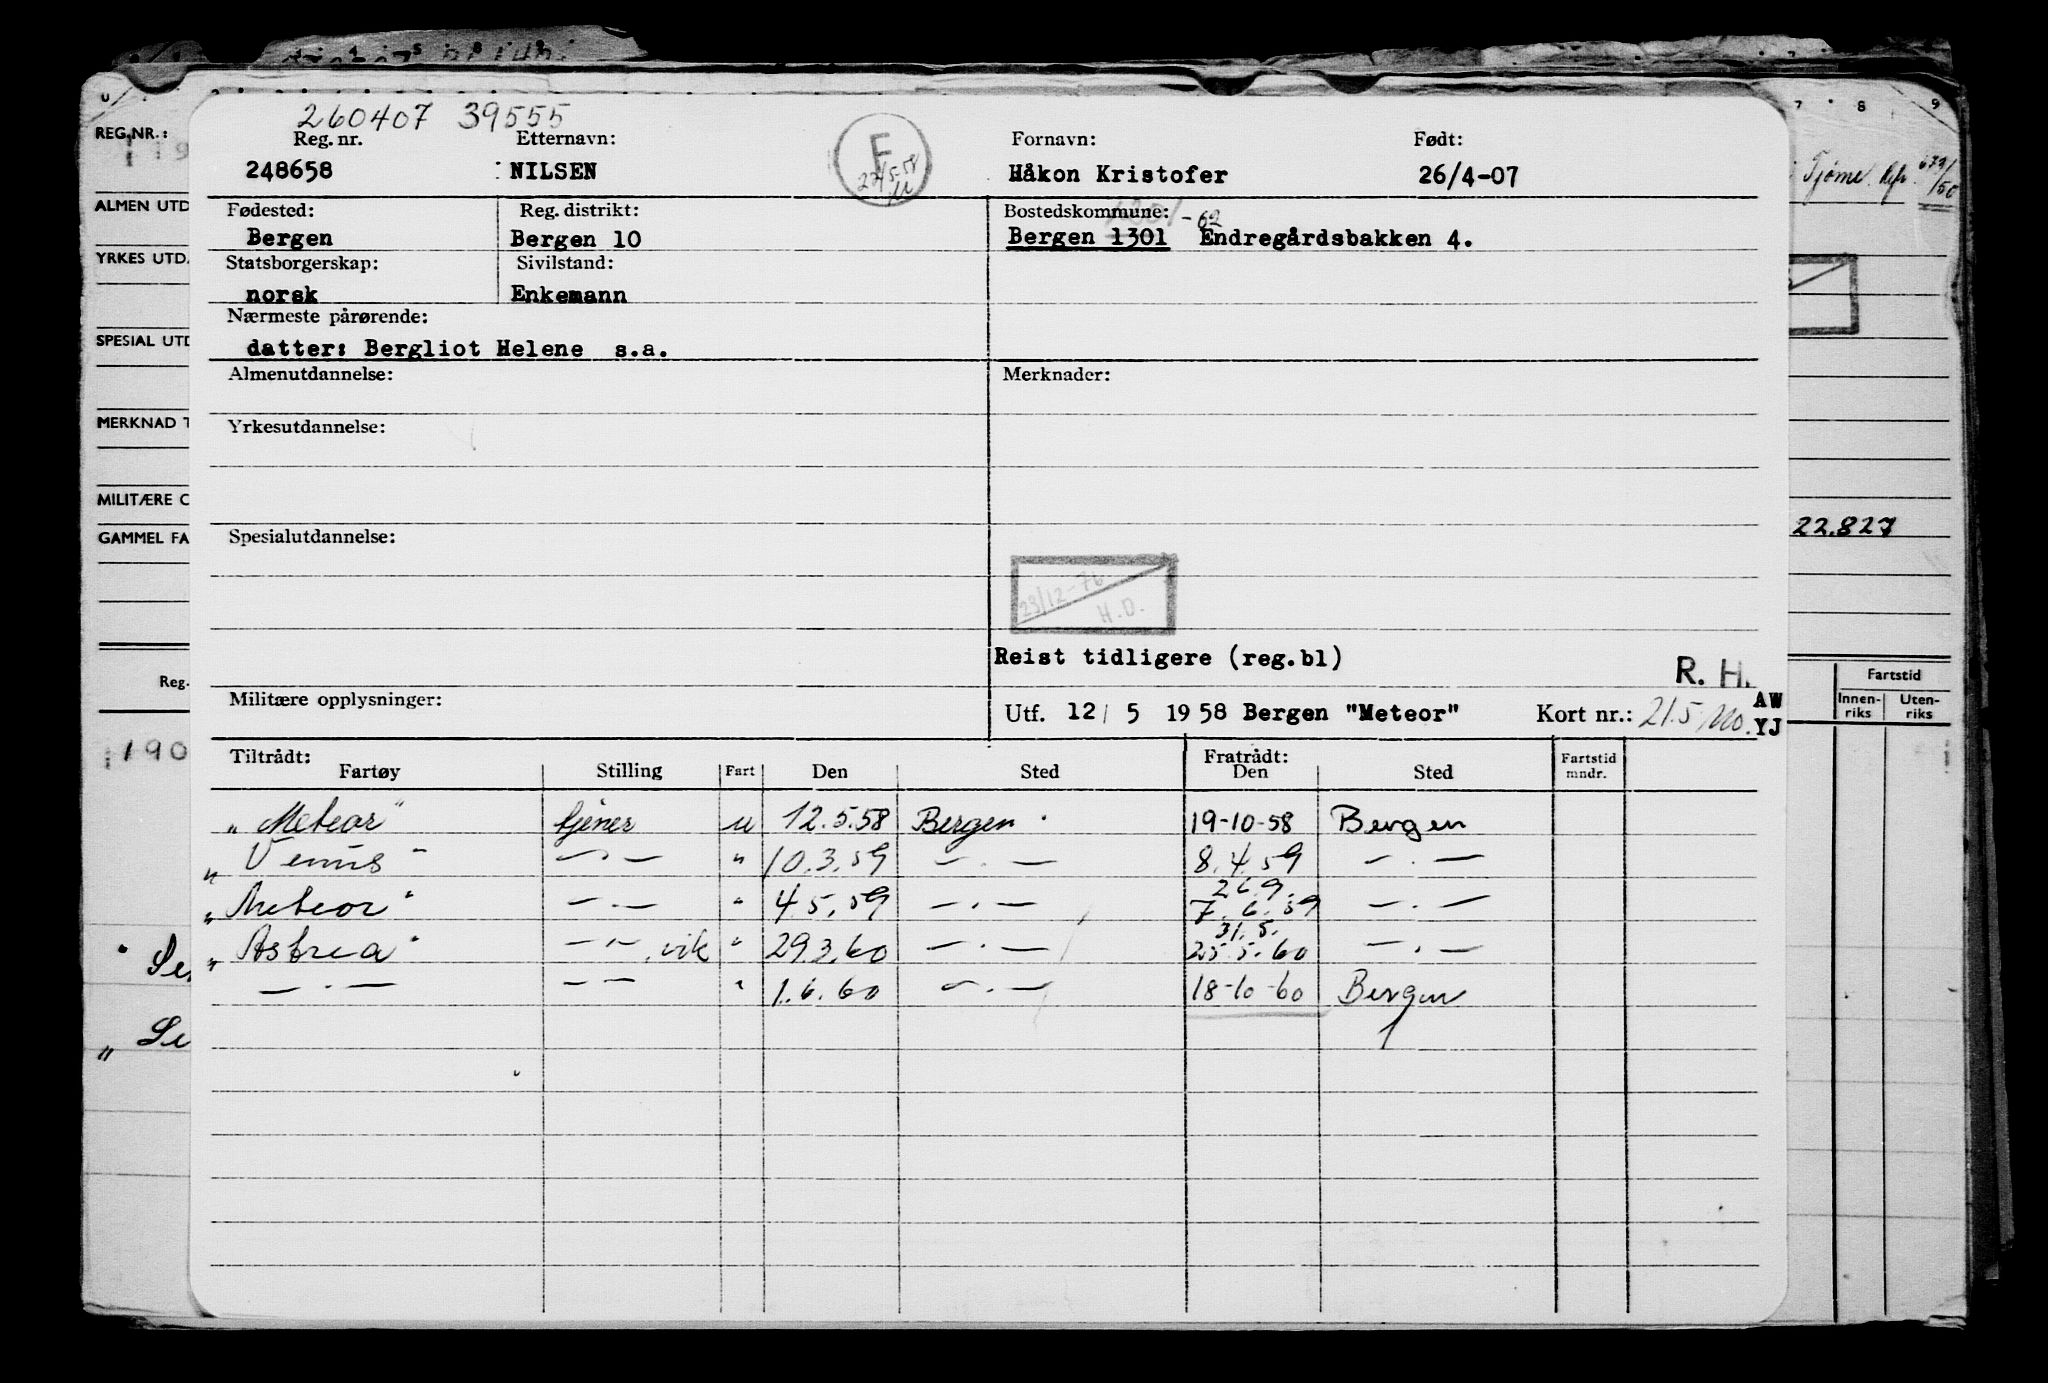 260407 39555
Reg. nr. Etternavn: Fornavn: Født:
248658 NILSEN Håkon Kristofer 26/4-07
F
Fødested: Reg. distrikt: Bostedskommune: -62
Bergen Bergen 10 Bergen 1301 Endregårdsbakken 4.
Statsborgerskap: Sivilstand:
norsk Enkemann
Nærmeste pårørende:
datter: Bergliot Helene s.a.
Almenutdannelse: Merknader:
Yrkesutdannelse:
Spesialutdannelse:
23/12-76
H.D.
Reist tidligere (reg.bl)
R. H.
Militære opplysninger: Utf. 12/ 5 1958 Bergen "Meteor" Kort nr.: 21.5 AW
YJ
Tiltrådt: Fratrådt:
Fartøy Stilling Fart Den Sted Den Sted Fartstid mndr.
"Meteor" tjener u 12.5.58 Bergen 19-10-58 Bergen
"Venus" — " — " 10.3.59 — . — 8.4.59 — . —
26.9.
"Meteor" — . — " 4.5.59 — . — 7.6.59 — . —
31.5.
"Astrea" — " —, vik " 29.3.60 — . — 25.5.60 — . —
— . — — — " 1.6.60 — . — 18-10-60 Bergen
REG.NR.:
ALMEN UTD
YRKES UTD.
SPESIAL UTD
MERKNAD T
MILITÆRE O
GAMMEL FA
Reg.
190
Se
" Se
7 8 9
Tjøme. 679/50
22.827
Fartstid
Innen-riks Uten-riks